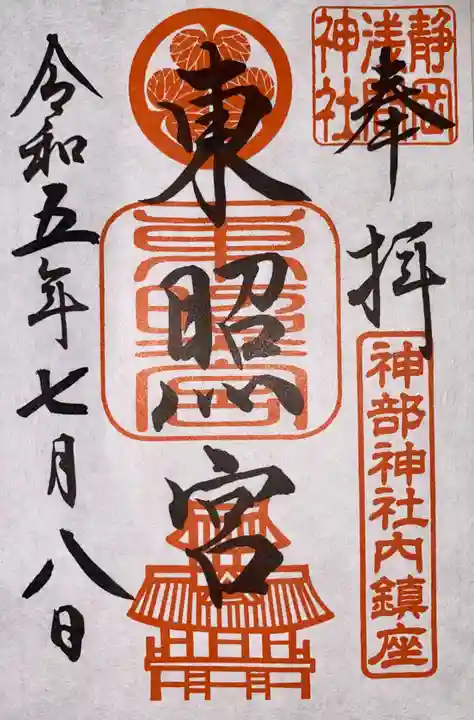 静岡
浅間
神社
奉拝
神部神社内鎮座
東照宮
東照宮
令和五年七月八日